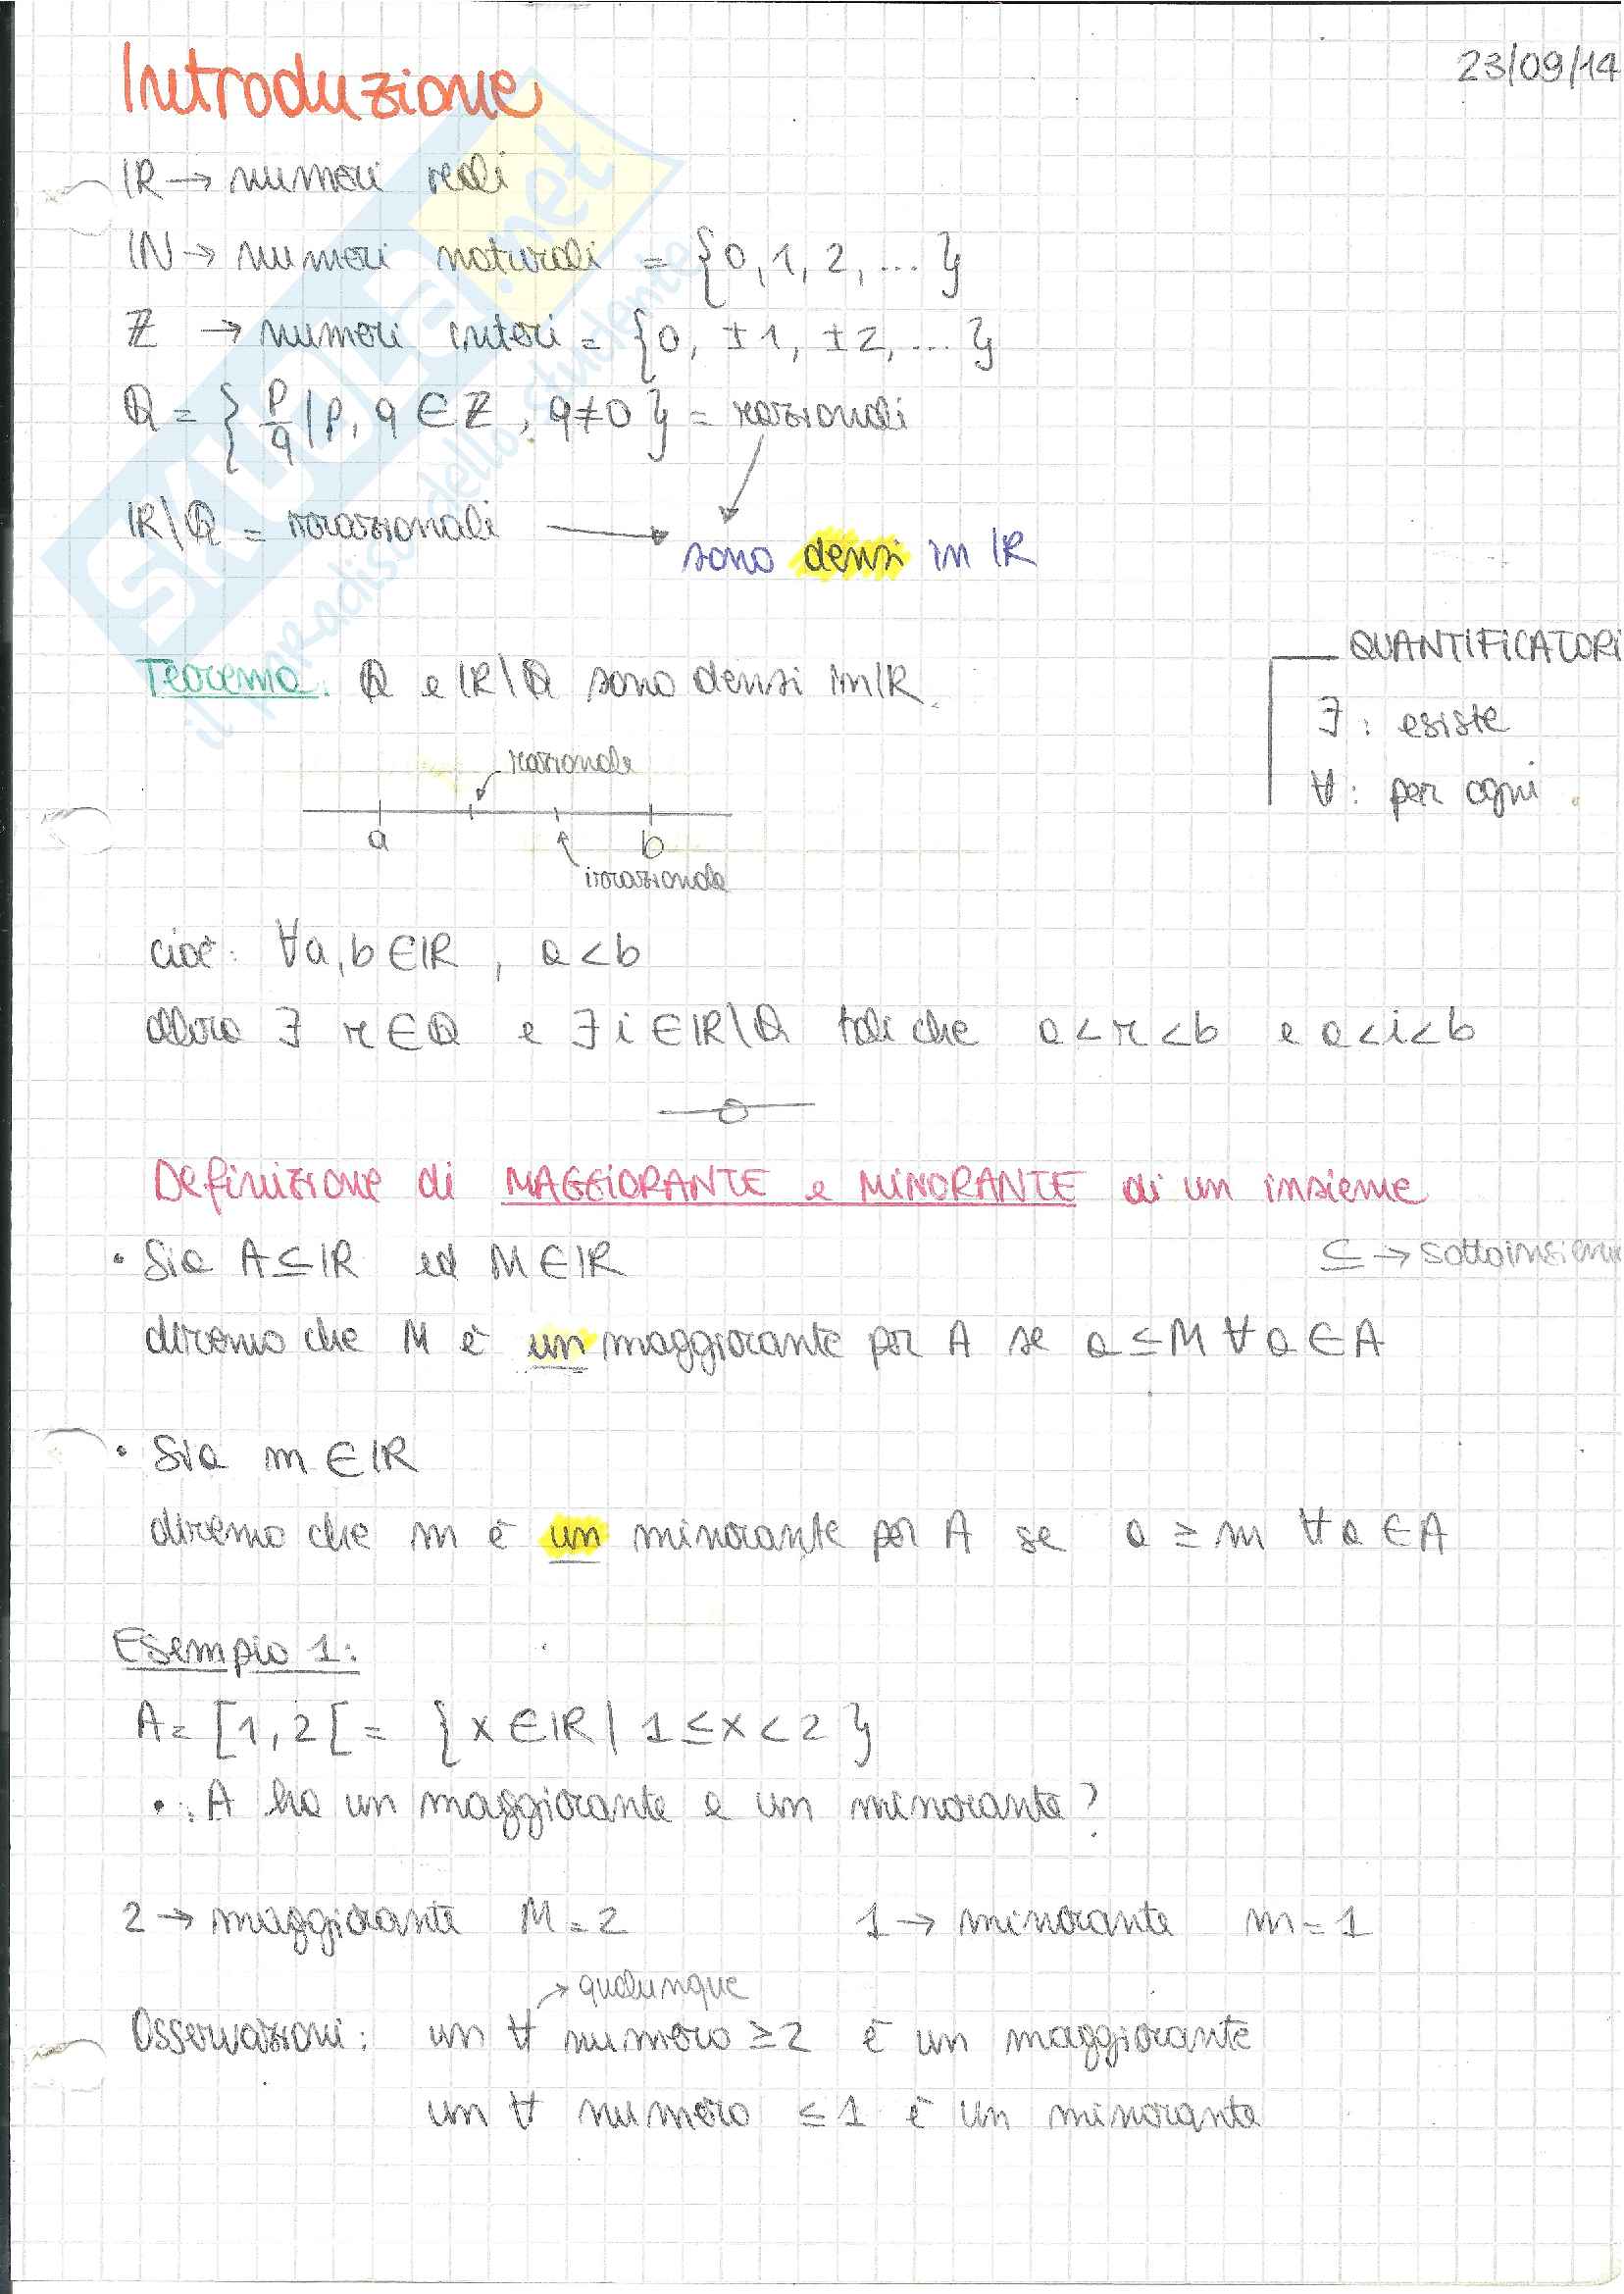 23/09/14
Introduzione
ℝ → numeri reali
ℕ → numeri naturali = {0, 1, 2, ... }
ℤ → numeri interi = {0, ±1, ±2, ... }
ℚ = { p/q | p, q ∈ ℤ, q≠0 } = razionali
ℝ\ℚ = irrazionali → sono densi in ℝ
Teorema: ℚ e ℝ\ℚ sono densi in ℝ.
QUANTIFICATORI
∃ : esiste
∀ : per ogni
razionale
a b
irrazionale
cioè: ∀a, b ∈ ℝ , a < b
allora ∃ r ∈ ℚ e ∃ i ∈ ℝ\ℚ tali che a < r < b e a < i < b
Definizione di MAGGIORANTE e MINORANTE di un insieme
• Sia A ⊆ ℝ ed M ∈ ℝ
⊆ → sottoinsieme
diremo che M è un maggiorante per A se a ≤ M ∀ a ∈ A
• Sia m ∈ ℝ
diremo che m è un minorante per A se a ≥ m ∀ a ∈ A
Esempio 1:
A = [1, 2[ = {x ∈ ℝ | 1 ≤ x < 2}
• : A ha un maggiorante e un minorante?
2 → maggiorante M = 2 1 → minorante m = 1
→ qualunque
Osservazioni: un ∀ numero ≥ 2 è un maggiorante
un ∀ numero ≤ 1 è un minorante
SKUOLA.net
il paradiso dello studente